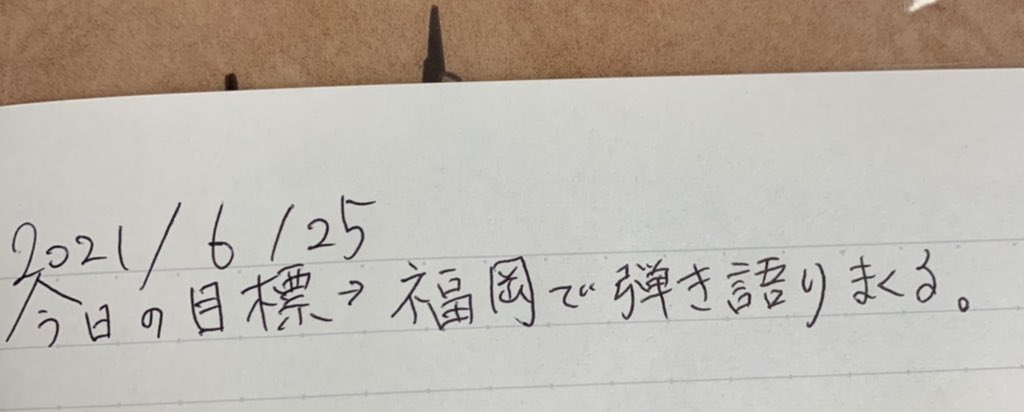 2021/6/25
今日の目標→福岡で弾き語りまくる。